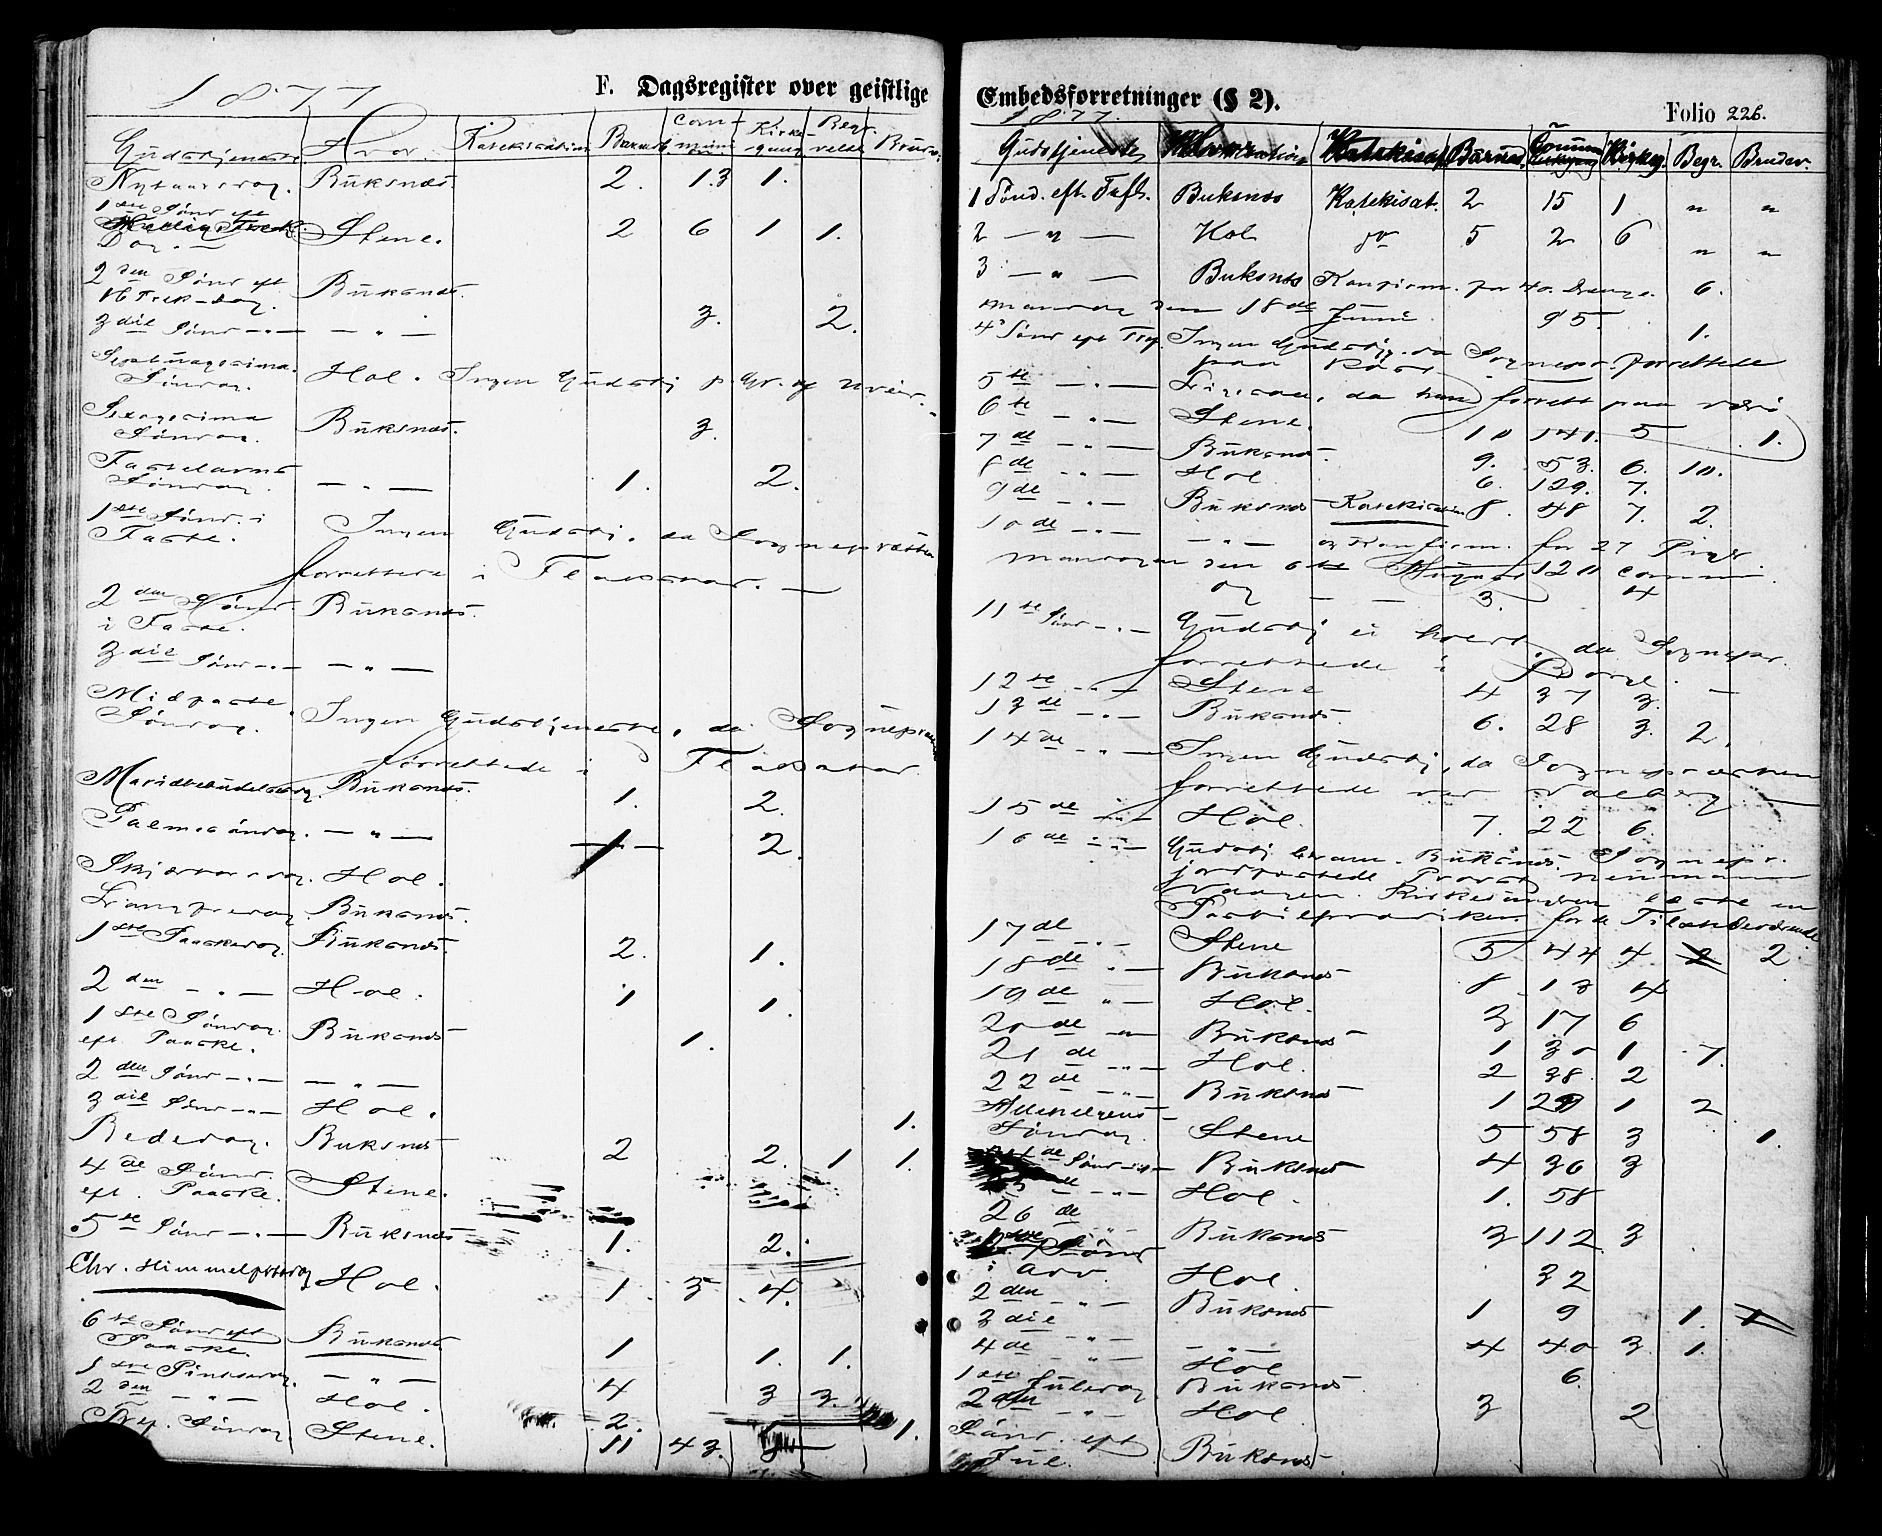 1877
F. Dagsregister over geistlige
Gudstjeneste Hvor. Katekisation Barned. Communi Kirkegang Begravelse Brudev.
Nytaarsdag. Buksnæs. 2. 13 1.
1ste Sönd eft
Hellig Trek.
Dag. — Stene. 2 6 1 1.
2den Sönd eft
H Trek-dag. Buksnæs.
3die Sönd — " — — " — 3. 2.
Septuagesima
Söndag. Hol. Ingen Gudstj p. Gr. af uveir.
Sexagesima
Söndag. Buksnæs. 3.
Fastelavns
Söndag. — " — 1. 2.
1ste Sönd. i
Faste. Ingen Gudstj. da Sognepræsten
forrettede i Flakstad. —
2den Sönd
i Faste. Buksnæs.
3die Sönd — " — — " —
Midfaste
Söndag. Ingen Gudstjeneste, da Sognepræs
forrettede i Flakstad
Mariæbebudelsesdag. Buksnæs. 1. 2.
Palmesöndag. — " — 1 2.
Skjærtorsdag. Hol.
Langfredag Buksnæs.
1ste Paaskedag. Buksnæs 2. 1.
2den — " — Hol. 1 1.
1ste Söndag
eft. Paaske. Buksnæs 1.
2den Sönd — " — — " —
3die Sönd — " — Hol. 1.
Bededag. Buksnæs 2 2. 1 1.
4de Sönd.
eft. Paaske. Stene.
5te Sönd — " — Buksnæs 1. 2.
Chr. Himmelfartsdag Hol. 1 3 4.
6te Sönd eft
Paaske. Buksnæs 1 1. 1.
1ste Pinsedag. — " — 4 3 3.
2den — " — Hol. 2. 1.
Tref. Söndag Stene. 11 43.
Embedsforretninger (§ 2).
1877.
Folio 226.
Gudstjeneste Hvor Katekisat Barned. Commun Kirkeg Begr. Brudev.
1 Sönd. eft. Trefh. Buksnæs Katekisat. 2 15 1 " "
2 — " — Hol do 5 2 6 " "
3 — " — Buksnæs Konfirm. for 40 Drenge. 6.
mandag den 18de Juni 95. 1.
4 Sönd eft Tref. Ingen Gudstj. da Sognepr. forrettede
paa
5te — " — Ligesaa, da han forrett paa Værö
6te — " — Stene. 10 141. 5 1.
7de — " — Buksnæs. 9. 53. 6. 10.
8de — " — Hol. 6. 129. 7.
9de — " — Buksnæs Katekisation 8. 48 7. 2.
10de — " — — " — og Konfirm. for 27 Piger
mandagen den 6te August 120 comm.
og — — 3. 4
11te Sönd — " — Gudstj ei holdt, da Sognepr.
forrettede i Borge.
12te — " — Stene 4 37 3. —
13de — " — Buksnæs. 6. 28 3. 2.
14de — " — Ingen Gudstj, da Sognepræsten
forrettede ved Valberg
15de — " — Hol. 7. 22 6.
16de — " — Gudstj Buksnæs. Sognepr.
jordfæstede Provst
Vaagen. Kirkesangeren læste en
for de Tilstedeværende
17de — " — Stene 5 44 4 2 2.
18de — " — Buksnæs 8 13 4
19de — " — Hol. 3 17 6
20de — " — Buksnæs 1 30 1 7.
21de — " — Hol. 2 38. 2
22de — " — Buksnæs 1 29 1 2
Allehelgens
Söndag. Stene 5 58 3 1.
24de Sönd — " — Buksnæs 4 36 3
25de — " — Hol. 1. 58
26de — " — Buksnæs 3 112 3
1ste Sönd
i Adv. Hol. 32
2den — " — Buksnæs 1 9 1. 1
3die — " — — " — 4 40 3. 1.
4de — " — Hol 6.
1ste Juledag Buksnæs.
2den — " — Hol 3 2
Sönd. eft
Jul. Buksnæs